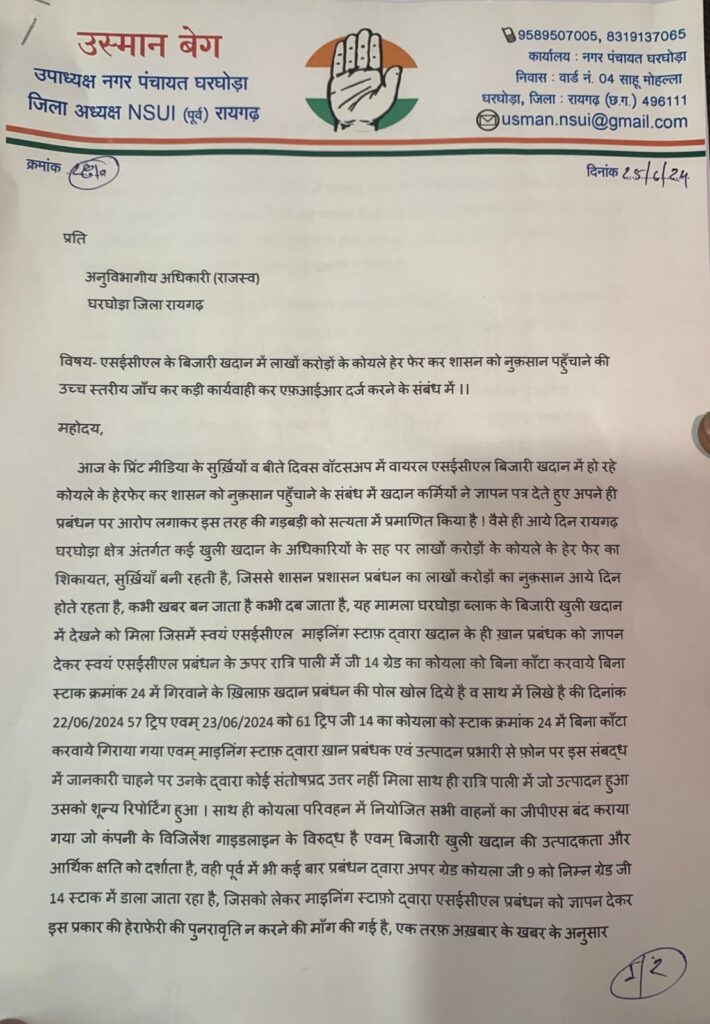 उस्मान बेग
उपाध्यक्ष नगर पंचायत घरघोड़ा
जिला अध्यक्ष NSUI (पूर्व) रायगढ़
9589507005, 8319137065
कार्यालय : नगर पंचायत घरघोड़ा
निवास : वार्ड नं. 04 साहू मोहल्ला
घरघोड़ा, जिला : रायगढ़ (छ.ग.) 496111
usman.nsui@gmail.com
क्रमांक
दिनांक 25/6/24
प्रति
अनुविभागीय अधिकारी (राजस्व)
घरघोड़ा जिला रायगढ़
विषय- एसईसीएल के बिजारी खदान में लाखों करोड़ों के कोयले हेर फेर कर शासन को नुक़सान पहुँचाने की
उच्च स्तरीय जाँच कर कड़ी कार्यवाही कर एफ़आईआर दर्ज करने के संबंध में ।।
महोदय,
आज के प्रिंट मीडिया के सुर्ख़ियों व बीते दिवस वॉटसअप में वायरल एसईसीएल बिजारी खदान में हो रहे
कोयले के हेरफेर कर शासन को नुक़सान पहुँचाने के संबंध में खदान कर्मियों ने ज्ञापन पत्र देते हुए अपने ही
प्रबंधन पर आरोप लगाकर इस तरह की गड़बड़ी को सत्यता में प्रमाणित किया है ! वैसे ही आये दिन रायगढ़
घरघोड़ा क्षेत्र अंतर्गत कई खुली खदान के अधिकारियों के सह पर लाखों करोड़ों के कोयले के हेर फेर का
शिकायत, सुर्ख़ियाँ बनी रहती है, जिससे शासन प्रशासन प्रबंधन का लाखों करोड़ों का नुक़सान आये दिन
होते रहता है, कभी खबर बन जाता है कभी दब जाता है, यह मामला घरघोड़ा ब्लाक के बिजारी खुली खदान
में देखने को मिला जिसमें स्वयं एसईसीएल माइनिंग स्टाफ़ द्वारा खदान के ही ख़ान प्रबंधक को ज्ञापन
देकर स्वयं एसईसीएल प्रबंधन के ऊपर रात्रि पाली में जी 14 ग्रेड का कोयला को बिना काँटा करवाये बिना
स्टाक क्रमांक 24 में गिरवाने के ख़िलाफ़ खदान प्रबंधन की पोल खोल दिये है व साथ में लिखे है की दिनांक
22/06/2024 57 ट्रिप एवम् 23/06/2024 को 61 ट्रिप जी 14 का कोयला को स्टाक क्रमांक 24 में बिना काँटा
करवाये गिराया गया एवम् माइनिंग स्टाफ़ द्वारा ख़ान प्रबंधक एवं उत्पादन प्रभारी से फ़ोन पर इस संबद्ध
में जानकारी चाहने पर उनके द्वारा कोई संतोषप्रद उत्तर नहीं मिला साथ ही रात्रि पाली में जो उत्पादन हुआ
उसको शून्य रिपोर्टिंग हुआ । साथ ही कोयला परिवहन में नियोजित सभी वाहनों का जीपीएस बंद कराया
गया जो कंपनी के विजिलेंश गाइडलाइन के विरुद्ध है एवम् बिजारी खुली खदान की उत्पादकता और
आर्थिक क्षति को दर्शाता है, वही पूर्व में भी कई बार प्रबंधन द्वारा अपर ग्रेड कोयला जी 9 को निम्न ग्रेड जी
14 स्टाक में डाला जाता रहा है, जिसको लेकर माइनिंग स्टाफ़ो द्वारा एसईसीएल प्रबंधन को ज्ञापन देकर
इस प्रकार की हेराफेरी की पुनरावृति न करने की माँग की गई है, एक तरफ़ अख़बार के खबर के अनुसार
1/2